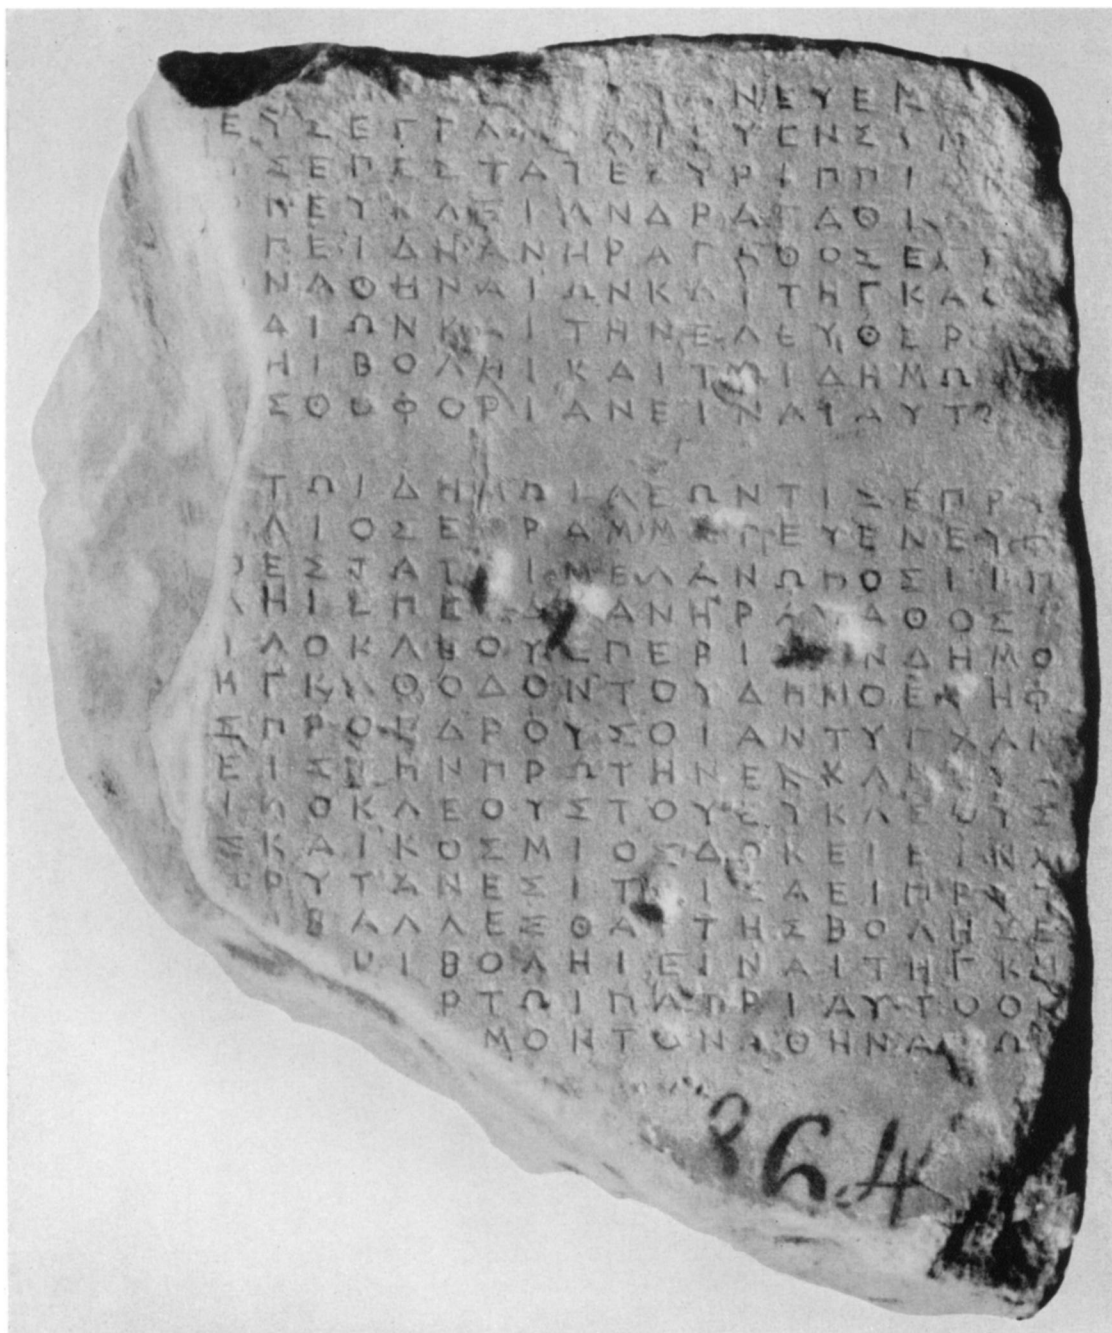 ΝΕΥΕΝ
ΕΥΣΕΓΡΑΜΜΑΤΕΥΕΝΣΙΜ
ΣΕΠΕΣΤΑΤΕΣΥΡΙΠΠΙ
ΠΕΥΚΛΕΙΑΝΔΡΑΓΑΘΙ
ΠΕΙΔΗΑΝΗΡΑΓΑΘΟΣΕΓΕ
ΟΝΑΘΗΝΑΙΩΝΚΑΙΤΗΓΚΑΘ
ΑΙΩΝΚΑΙΤΗΝΕΛΕΥΘΕΡΙ
ΗΙΒΟΛΗΙΚΑΙΤΩΙΔΗΜΩ
ΣΟΥΦΟΡΙΑΝΕΙΝΑΙΑΥΤΩ
ΤΩΙΔΗΜΩΙΛΕΩΝΤΙΣΕΠΡΥ
ΛΙΟΣΕΓΡΑΜΜΑΤΕΥΕΝΕΥΠ
ΠΕΣΤΑΤΕΙΜΕΛΑΝΩΠΟΣΕΙΠ
ΛΗΙΕΠΕΙΔΗΑΝΗΡΑΓΑΘΟΣ
ΙΛΟΚΛΕΟΥΣΠΕΡΙΤΟΝΔΗΜΟ
ΗΓΚΑΘΟΔΟΝΤΟΥΔΗΜΟΕΨΗΦ
ΣΠΡΟΕΔΡΟΥΣΟΙΑΝΤΥΓΧΑΝ
ΕΙΣΤΗΝΠΡΩΤΗΝΕΚΚΛΗΣΙΑ
ΙΛΟΚΛΕΟΥΣΤΟΥΕΥΚΛΕΟΥΣ
ΣΚΑΙΚΟΣΜΙΟΣΔΟΚΕΙΕΙΝΑ
ΡΥΤΑΝΕΣΙΤΟΙΣΑΕΙΠΡΥΤ
ΒΑΛΛΕΣΘΑΙΤΗΣΒΟΛΗΣΕ
ΙΒΟΛΗΙΕΙΝΑΙΤΗΓΚΗ
ΡΤΩΙΠΑΤΡΙΑΥΤΟΟ
ΜΟΝΤΟΝΑΘΗΝΑΙΩ
864